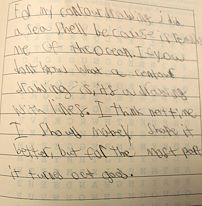 For my contour drawing i did
a sea shell because it reminds
me of the ocean. If you
dont know what a contour
drawing is, its a drawing
with lines. I think next time
I should maby shade it
better, but for the most part
it turned out good.